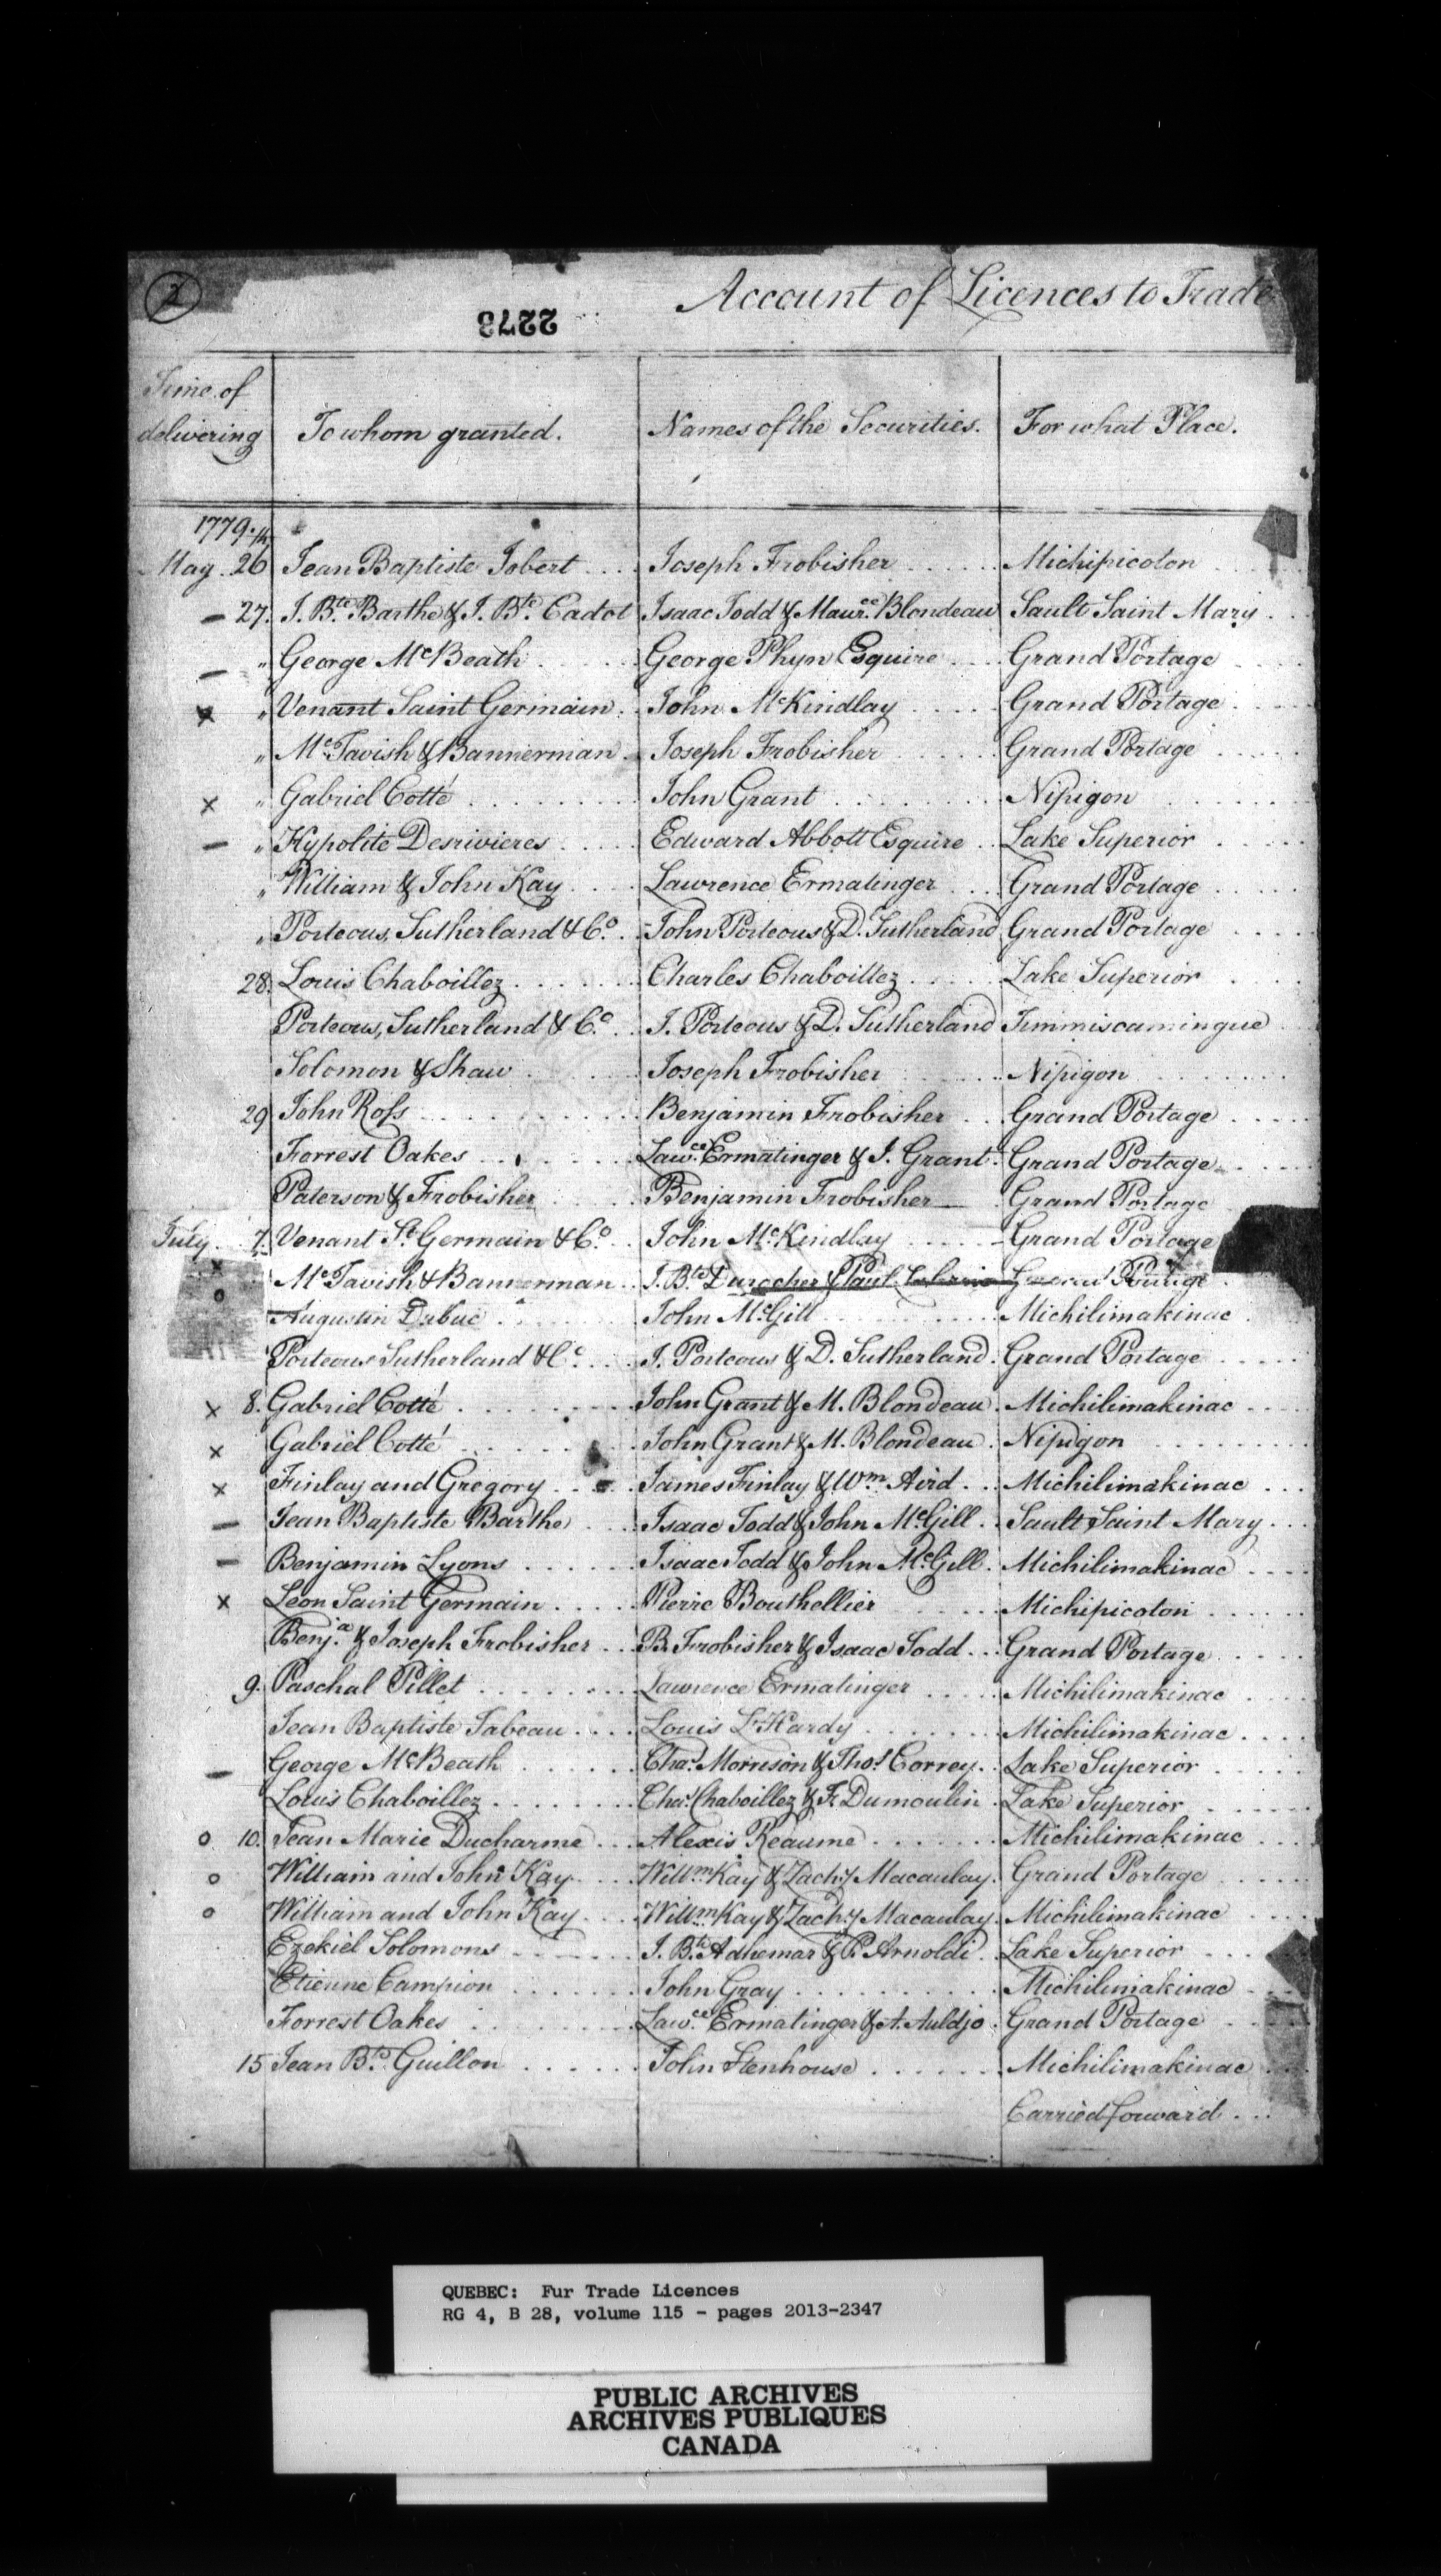 2
2273
Account of Licences to Trade
Time of delivering
To whom granted.
Names of the Securities.
For what Place.
1779.
May 26 Jean Baptiste Jobert .... Joseph Frobisher ...... Michipicoton ......
— 27. J. Bte. Barthe & J. Bte. Cadot Isaac Todd & Maurce. Blondeau Sault Saint Mary ...
— " George McBeath ..... George Phyn Esquire .... Grand Portage ....
x " Venant Saint Germain . John McKindlay ..... Grand Portage ....
" McTavish & Bannerman . Joseph Frobisher ...... Grand Portage .....
x " Gabriel Cotté ........ John Grant ........ Nipigon ......
— " Hypolite Desrivieres ..... Edward Abbott Esquire .. Lake Superior .....
" William & John Kay .... Lawrence Ermatinger ... Grand Portage .....
" Porteous, Sutherland & Co. .. John Porteous & D. Sutherland Grand Portage ....
28. Louis Chaboillez ...... Charles Chaboillez ..... Lake Superior ....
Porteous, Sutherland & Co. .. J. Porteous & D. Sutherland Timmiscamingue
Solomon & Shaw ..... Joseph Frobisher ...... Nipigon ......
29 John Ross ......... Benjamin Frobisher ... Grand Portage .....
Forrest Oakes ........ Lawce. Ermatinger & J. Grant. Grand Portage ....
Paterson & Frobisher .... Benjamin Frobisher — Grand Portage
July 7. Venant St. Germain & Co. .. John McKindlay ..... Grand Portage
x McTavish & Bannerman .. J. Bte. Durocher & Paul Grand Portage .
o Augustin Dubuc ...... John McGill ......... Michilimakinac .
Porteous Sutherland & Co. ... J. Porteous & D. Sutherland . Grand Portage .....
x 8. Gabriel Cotté ......... John Grant & M. Blondeau . Michilimakinac ....
x Gabriel Cotté ........ John Grant & M. Blondeau . Nipigon ........
x Finlay and Gregory .... James Finlay & Wm. Aird ... Michilimakinac ...
— Jean Baptiste Barthe .... Isaac Todd & John McGill .. Sault Saint Mary ...
— Benjamin Lyons ...... Isaac Todd & John McGill . Michilimakinac ....
x Leon Saint Germain ..... Pierre Bouthellier ...... Michipicoton ......
Benja. & Joseph Frobisher ... B. Frobisher & Isaac Todd ... Grand Portage .....
9. Paschal Pillet ........ Lawrence Ermatinger ..... Michilimakinac ....
Jean Baptiste Tabeau .... Louis L'Hardy ....... Michilimakinac ....
— George McBeath ...... Chas. Morrison & Thos. Correy .. Lake Superior .....
Louis Chaboillez ........ Chas. Chaboillez & F. Dumoulin . Lake Superior .....
o 10. Jean Marie Ducharme ... Alexis Reaume ....... Michilimakinac ...
o William and John Kay .... Willm. Kay & Zachy. Macaulay . Grand Portage .....
o William and John Kay .... Willm. Kay & Zachy. Macaulay . Michilimakinac ....
Ezekiel Solomons ....... J. Bte. Adhemar & P. Arnoldi .. Lake Superior ...
Etienne Campion ....... John Gray .......... Michilimakinac ..
Forrest Oakes ........ Lawce. Ermatinger & A. Auldjo . Grand Portage ...
15 Jean Bte. Guillon ...... John Stenhouse ...... Michilimakinac ...
Carried forward ...
QUEBEC: Fur Trade Licences
RG 4, B 28, volume 115 - pages 2013-2347
PUBLIC ARCHIVES
ARCHIVES PUBLIQUES
CANADA